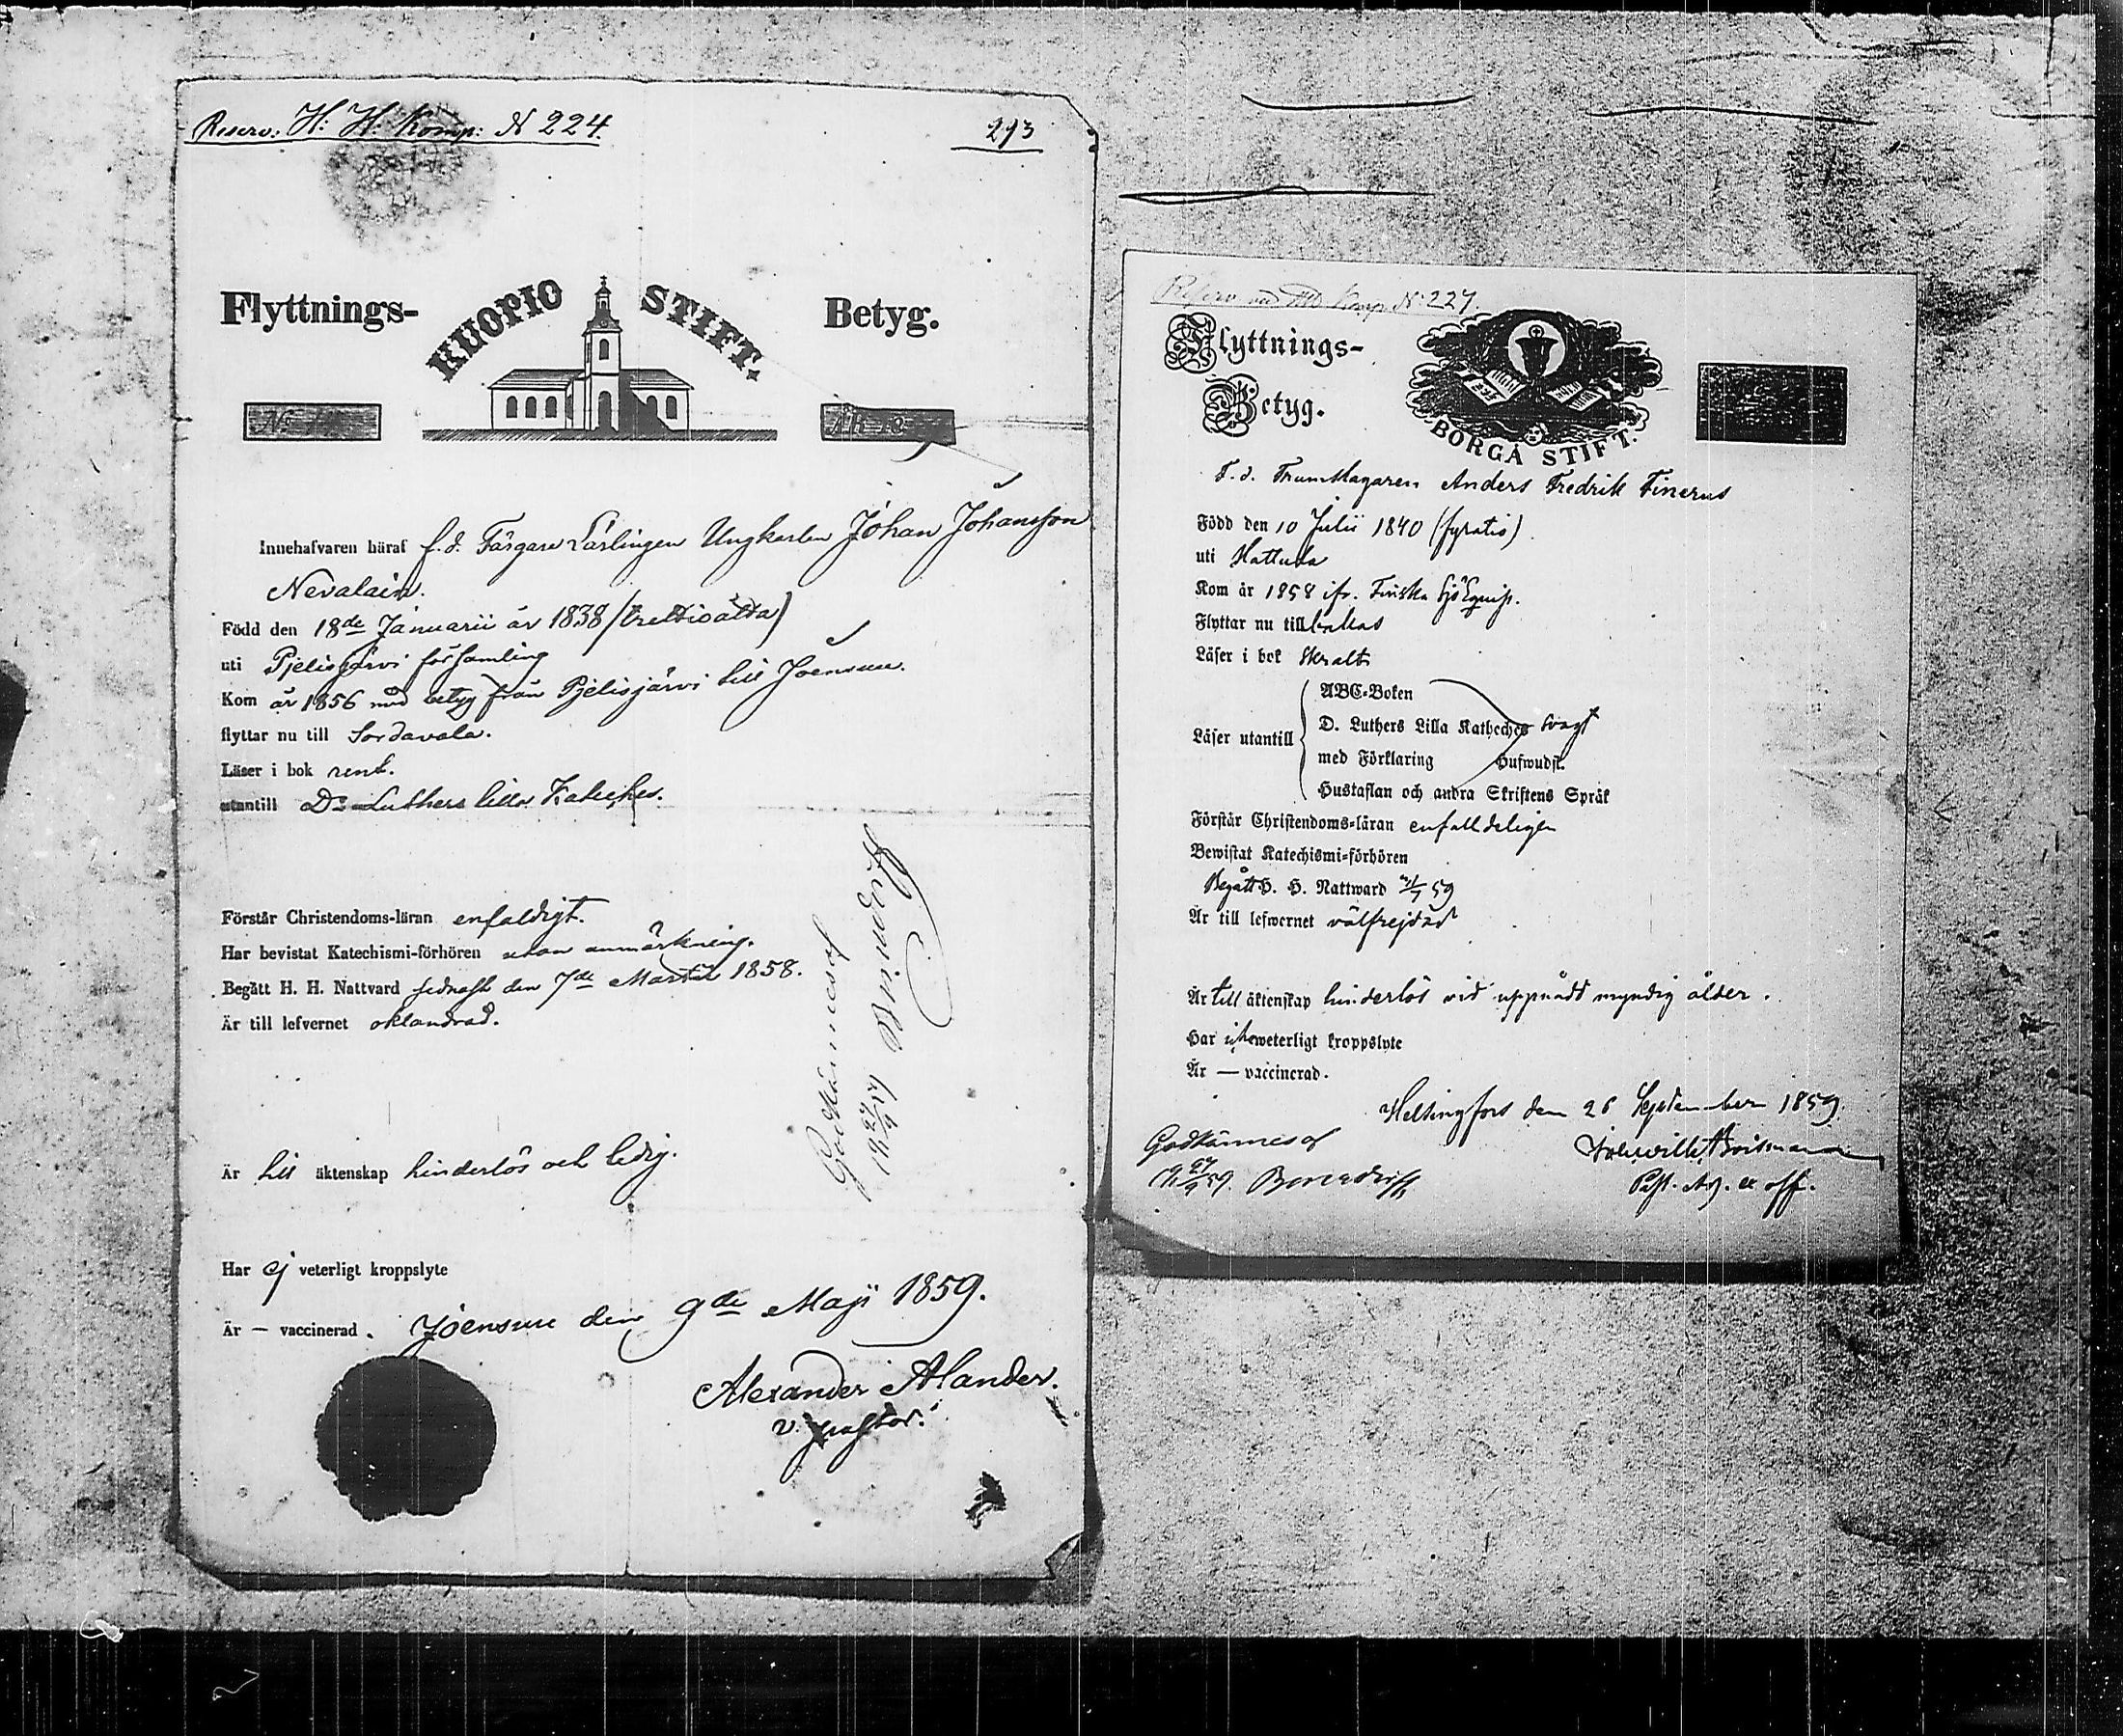 Reserv: H: H: Komp: N 224.
293
Flyttnings-
KUOPIO STIFT.
Betyg.
Innehafvaren häraf f.d. Färgare Lärlingen Ungkarlen Johan Johansson
Nevalain.
Född den 18de Januarii år 1838 (trettioåtta)
uti Pjelisjärvi församling
Kom år 1856 med betyg från Pjelisjärvi till Joensuu.
flyttar nu till Sordavala.
Läser i bok rent.
utantill Dr Luthers lilla Kateches.
Förstår Christendoms-läran enfaldigt.
Har bevistat Katechismi-förhören utan anmärkning.
Begått H. H. Nattvard sednast den 7de Martii 1858.
Är till lefvernet oklandrad.
Är till äktenskap hinderlös och ledig.
Har ej veterligt kroppslyte
Är — vaccinerad. Joensuu den 9de Maji 1859.
Alexander Alander.
v. pastor.
Godkännes af
27/9 59
N: 227.
Flyttnings-
Betyg.
BORGÅ STIFT.
F.d. Trumslagaren Anders Fredrik Finerus
Född den 10 Julii 1840 (fyratio)
uti Hattula
Kom år 1858 ifr. Finska Sjö Equip.
Flyttar nu till
Läser i bok skralt
Läser utantill
ABC-Boken
D. Luthers Lilla Kateches svagt
med Förklaring Hufwudst.
Hustaflan och andra Skriftens Språk
Förstår Christendoms-läran enfalldeligen
Bewistat Katechismi-förhören
Begått H. H. Nattward 59
Är till lefwernet välfrejdad
Är till äktenskap hinderlös vid uppnådd myndig ålder.
Har icke weterligt kroppslyte
Är — vaccinerad.
Helsingfors den 26 September 1859.
Godkännes af
27/9 59.
Past. Adj. ex off.